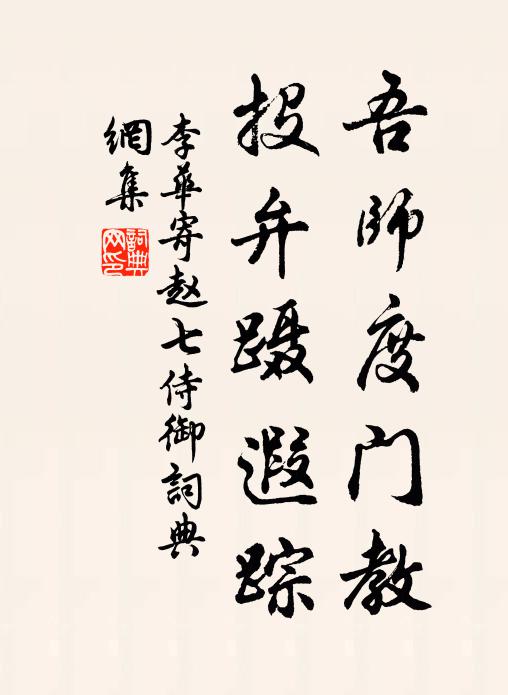 吾师度门教
投弁蹑遐踪
李華寄赵七侍御詞典
網集
詞典網印